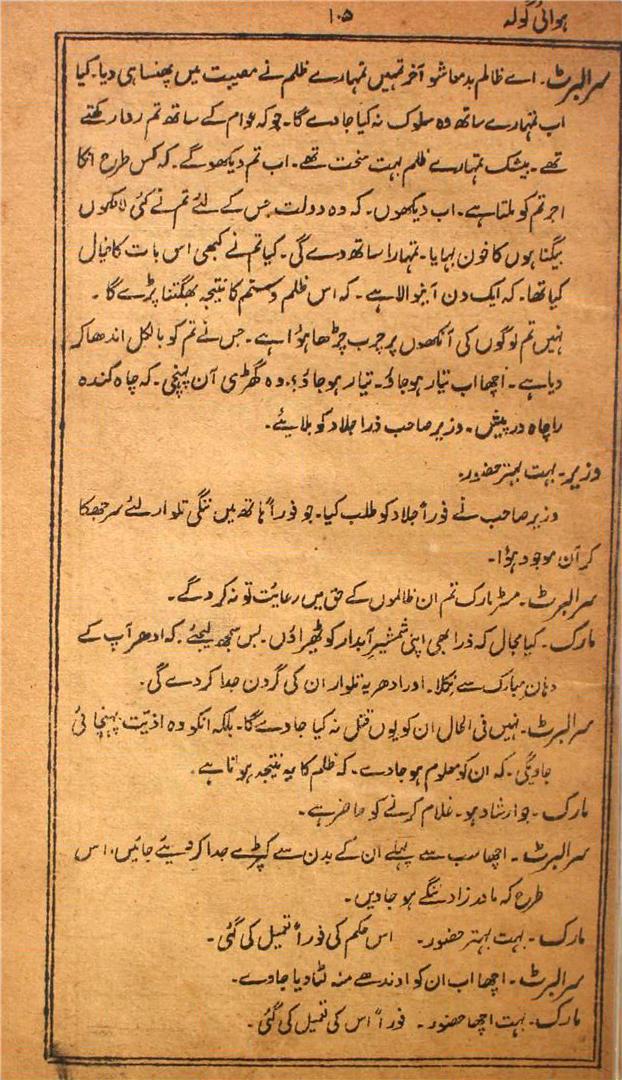 ہوائی گولہ
۱۰۵
سرالبرٹ۔ اے ظالم بدمعاشو آخر تمہیں تمہارے ظلم نے مصیبت میں پھنسا ہی دیا۔ کیا
اب تمہارے ساتھ وہ سلوک نہ کیا جاوے گا۔ جو کہ عوام کے ساتھ تم روا رکھتے
تھے۔ بیشک تمہارے ظلم بہت سخت تھے۔ اب تم دیکھو گے۔ کہ کس طرح انکا
اجر تم کو ملتا ہے۔ اب دیکھوں۔ کہ وہ دولت جس کے لئے تم نے کئی لاکھوں
بیگناہوں کا خون بہایا۔ تمہارا ساتھ دے گی۔ کیا تم نے کبھی اس بات کا خیال
کیا تھا۔ کہ ایک دن آنیوالا ہے۔ کہ اس ظلم و ستم کا نتیجہ بھگتنا پڑے گا۔
نہیں تم لوگوں کی آنکھوں پر چرب چڑھا ہؤا ہے۔ جس نے تم کو بالکل اندھا کر
دیا ہے۔ اچھا اب تیار ہو جاؤ۔ تیار ہو جاؤ؛ وہ گھڑی آن پہنچی۔ کہ چاہ کندہ
را چاہ درپیش۔ وزیر صاحب ذرا جلاد کو بلائیے۔
وزیر۔ بہت بہتر حضور۔
وزیر صاحب نے فوراً جلاد کو طلب کیا۔ جو فوراً ہاتھ میں ننگی تلوار لئے سر جھکا
کر آن موجود ہؤا۔
سرالبرٹ۔ مسٹر مارک تم ان ظالموں کے حق میں رعایت تو نہ کرو گے۔
مارک۔ کیا مجال کہ ذرا بھی اپنی شمشیرِ آبدار کو ٹھیراؤں۔ بس سمجھ لیجئے۔ کہ ادھر آپ کے
دہان مبارک سے نکلا۔ اور ادھر یہ تلوار ان کی گردن جدا کر دے گی۔
سرالبرٹ۔ نہیں فی الحال ان کو یوں قتل نہ کیا جاوے گا۔ بلکہ انکو وہ اذیت پہنچائی
جاویگی۔ کہ ان کو معلوم ہو جاوے۔ کہ ظلم کا یہ نتیجہ ہوتا ہے۔
مارک۔ جو ارشاد ہو۔ غلام کرنے کو حاضر ہے۔
سرالبرٹ۔ اچھا سب سے پہلے ان کے بدن سے کپڑے جدا کر دیئے جائیں، اس
طرح کہ مادر زاد ننگے ہو جاویں۔
مارک۔ بہت بہتر حضور۔ اس حکم کی فوراً تعمیل کی گئی۔
سرالبرٹ۔ اچھا اب ان کو اوندھے منہ لٹا دیا جاوے۔
مارک۔ بہت اچھا حضور۔ فوراً اس کی تعمیل کی گئی۔